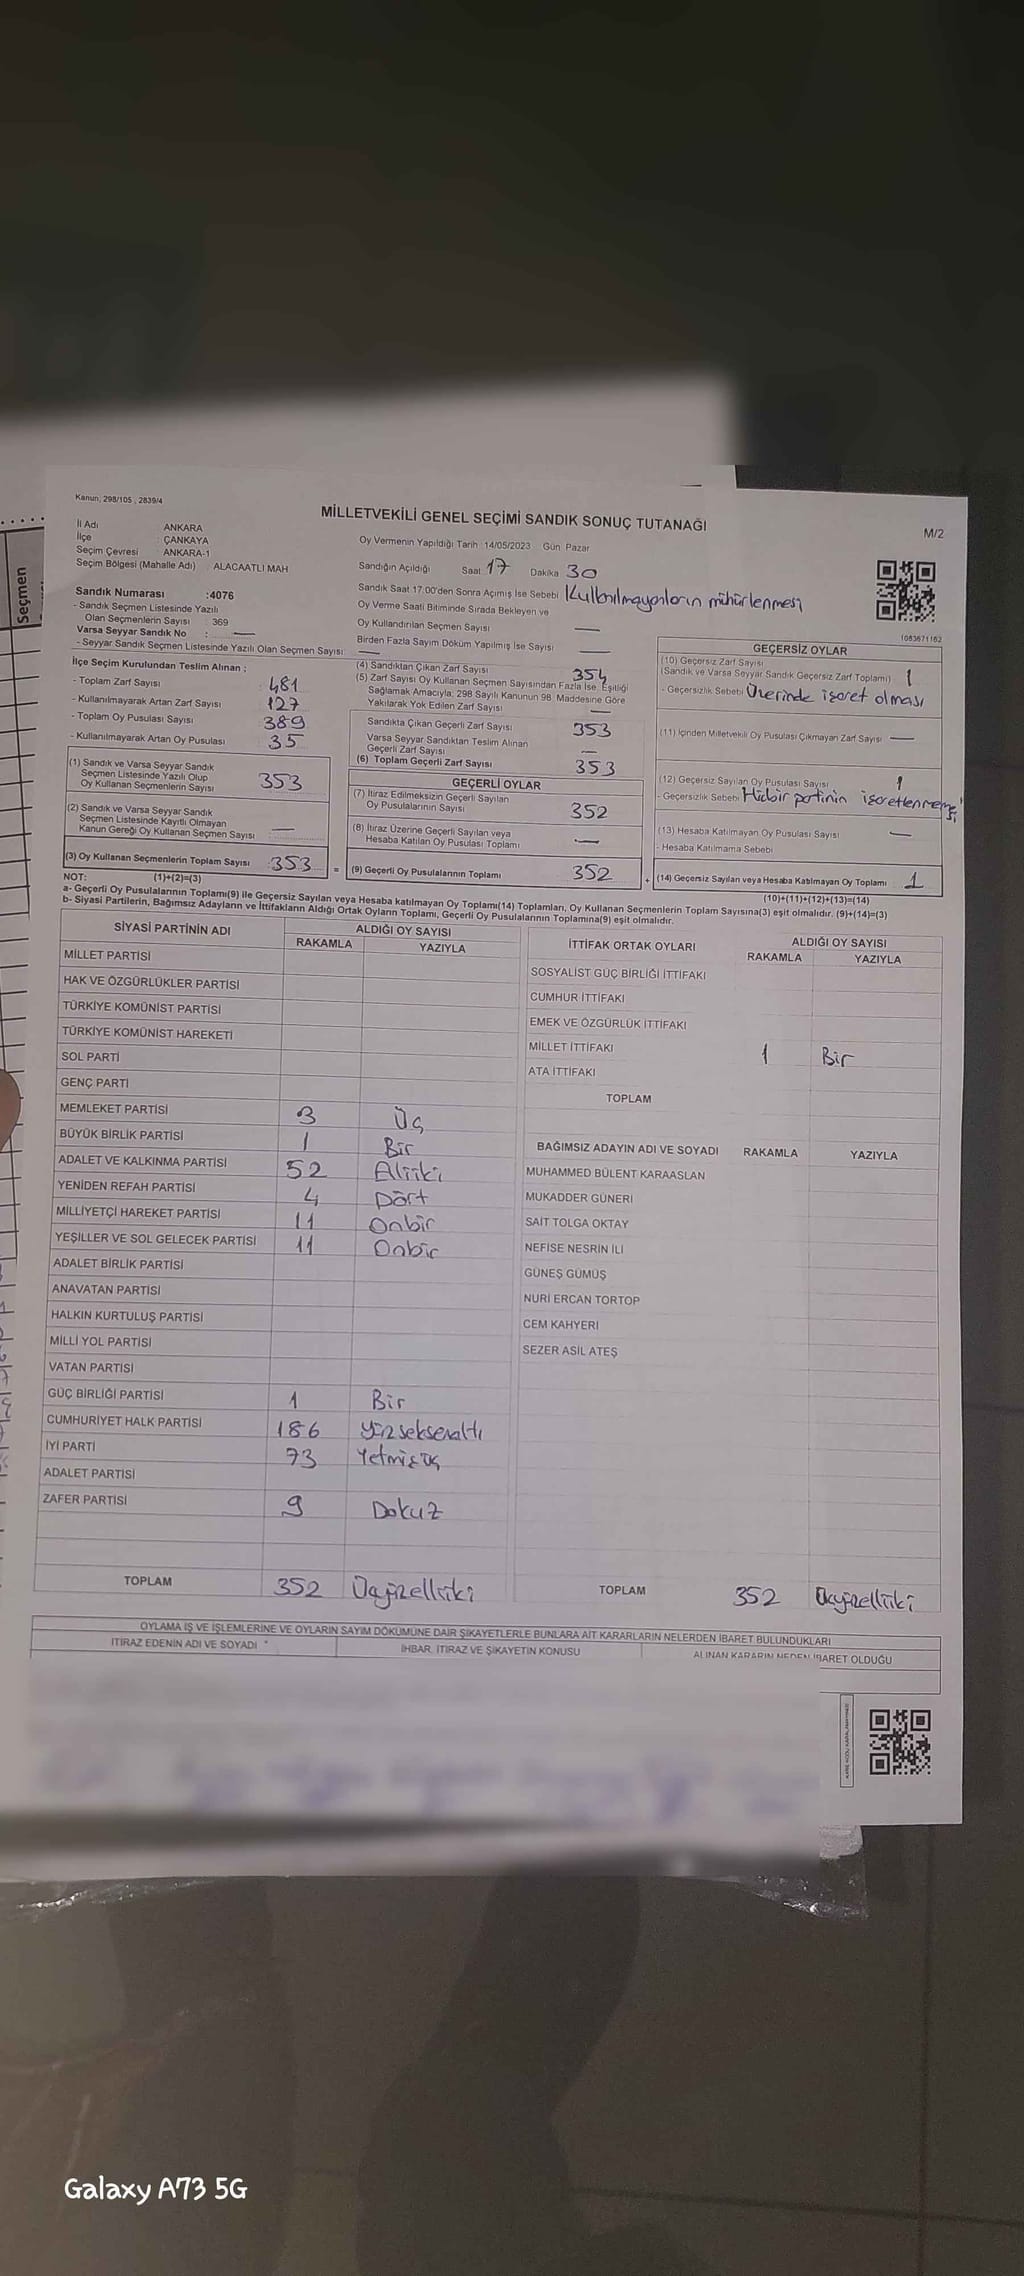 Kanun, 298/105 , 2839/4
MİLLETVEKİLİ GENEL SEÇİMİ SANDIK SONUÇ TUTANAĞI
M/2
İl Adı ANKARA
İlçe : ÇANKAYA
Seçim Çevresi : ANKARA-1
Seçim Bölgesi (Mahalle Adı) : ALACAATLI MAH
Seçmen
Oy Vermenin Yapıldığı Tarih 14/05/2023 Gün Pazar
Sandığın Açıldığı Saat 17 Dakika 30
Sandık Saat 17:00'den Sonra Açımış İse Sebebi Kullanılmayanların mühürlenmesi
Oy Verme Saati Bitiminde Sırada Bekleyen ve
Oy Kullandırılan Seçmen Sayısı —
Birden Fazla Sayım Döküm Yapılmış İse Sayısı —
Sandık Numarası :4076
- Sandık Seçmen Listesinde Yazılı
Olan Seçmenlerin Sayısı : 369
Varsa Seyyar Sandık No : —
- Seyyar Sandık Seçmen Listesinde Yazılı Olan Seçmen Sayısı: —
İlçe Seçim Kurulundan Teslim Alınan :
- Toplam Zarf Sayısı : 481
- Kullanılmayarak Artan Zarf Sayısı : 127
- Toplam Oy Pusulası Sayısı : 389
- Kullanılmayarak Artan Oy Pusulası : 35
(1) Sandık ve Varsa Seyyar Sandık
Seçmen Listesinde Yazılı Olup
Oy Kullanan Seçmenlerin Sayısı 353
(2) Sandık ve Varsa Seyyar Sandık
Seçmen Listesinde Kayıtlı Olmayan
Kanun Gereği Oy Kullanan Seçmen Sayısı : —
(3) Oy Kullanan Seçmenlerin Toplam Sayısı :353 =
(4) Sandıktan Çıkan Zarf Sayısı 354
(5) Zarf Sayısı Oy Kullanan Seçmen Sayısından Fazla İse, Eşitliği
Sağlamak Amacıyla; 298 Sayılı Kanunun 98. Maddesine Göre
Yakılarak Yok Edilen Zarf Sayısı —
Sandıkta Çıkan Geçerli Zarf Sayısı 353
Varsa Seyyar Sandıktan Teslim Alınan
Geçerli Zarf Sayısı —
(6) Toplam Geçerli Zarf Sayısı 353
GEÇERLİ OYLAR
(7) İtiraz Edilmeksizin Geçerli Sayılan
Oy Pusulalarının Sayısı 352
(8) İtiraz Üzerine Geçerli Sayılan veya
Hesaba Katılan Oy Pusulası Toplamı —
(9) Geçerli Oy Pusulalarının Toplamı 352 +
1083671162
GEÇERSİZ OYLAR
(10) Geçersiz Zarf Sayısı
(Sandık ve Varsa Seyyar Sandık Geçersiz Zarf Toplamı) 1
- Geçersizlik Sebebi Üzerinde işaret olması
(11) İçinden Milletvekili Oy Pusulası Çıkmayan Zarf Sayısı —
(12) Geçersiz Sayılan Oy Pusulası Sayısı 1
- Geçersizlik Sebebi Hiçbir partinin işaretlenmemesi
(13) Hesaba Katılmayan Oy Pusulası Sayısı —
- Hesaba Katılmama Sebebi
(14) Geçersiz Sayılan veya Hesaba Katılmayan Oy Toplamı 1
NOT: (1)+(2)=(3)
(10)+(11)+(12)+(13)=(14)
a- Geçerli Oy Pusulalarının Toplamı(9) ile Geçersiz Sayılan veya Hesaba katılmayan Oy Toplamı(14) Toplamları, Oy Kullanan Seçmenlerin Toplam Sayısına(3) eşit olmalıdır. (9)+(14)=(3)
b- Siyasi Partilerin, Bağımsız Adayların ve İttifakların Aldığı Ortak Oyların Toplamı, Geçerli Oy Pusulalarının Toplamına(9) eşit olmalıdır.
SİYASİ PARTİNİN ADI ALDIĞI OY SAYISI
RAKAMLA YAZIYLA
MİLLET PARTİSİ
HAK VE ÖZGÜRLÜKLER PARTİSİ
TÜRKİYE KOMÜNİST PARTİSİ
TÜRKİYE KOMÜNİST HAREKETİ
SOL PARTİ
GENÇ PARTİ
MEMLEKET PARTİSİ 3 Üç
BÜYÜK BİRLİK PARTİSİ 1 Bir
ADALET VE KALKINMA PARTİSİ 52 Elliiki
YENİDEN REFAH PARTİSİ 4 Dört
MİLLİYETÇİ HAREKET PARTİSİ 11 Onbir
YEŞİLLER VE SOL GELECEK PARTİSİ 11 Onbir
ADALET BİRLİK PARTİSİ
ANAVATAN PARTİSİ
HALKIN KURTULUŞ PARTİSİ
MİLLİ YOL PARTİSİ
VATAN PARTİSİ
GÜÇ BİRLİĞİ PARTİSİ 1 Bir
CUMHURİYET HALK PARTİSİ 186 Yüzseksenaltı
İYİ PARTİ 73 Yetmişüç
ADALET PARTİSİ
ZAFER PARTİSİ 9 Dokuz
TOPLAM 352 Üçyüzelliiki
İTTİFAK ORTAK OYLARI ALDIĞI OY SAYISI
RAKAMLA YAZIYLA
SOSYALİST GÜÇ BİRLİĞİ İTTİFAKI
CUMHUR İTTİFAKI
EMEK VE ÖZGÜRLÜK İTTİFAKI
MİLLET İTTİFAKI 1 Bir
ATA İTTİFAKI
TOPLAM
BAĞIMSIZ ADAYIN ADI VE SOYADI RAKAMLA YAZIYLA
MUHAMMED BÜLENT KARAASLAN
MUKADDER GÜNERİ
SAİT TOLGA OKTAY
NEFİSE NESRİN İLİ
GÜNEŞ GÜMÜŞ
NURİ ERCAN TORTOP
CEM KAHYERİ
SEZER ASİL ATEŞ
TOPLAM 352 Üçyüzelliiki
OYLAMA İŞ VE İŞLEMLERİNE VE OYLARIN SAYIM DÖKÜMÜNE DAİR ŞİKAYETLERLE BUNLARA AİT KARARLARIN NELERDEN İBARET BULUNDUKLARI
İTİRAZ EDENİN ADI VE SOYADI * İHBAR, İTİRAZ VE ŞİKAYETİN KONUSU ALINAN KARARIN NEDEN İBARET OLDUĞU
KARE KODU KARALAMAYINIZ
Galaxy A73 5G